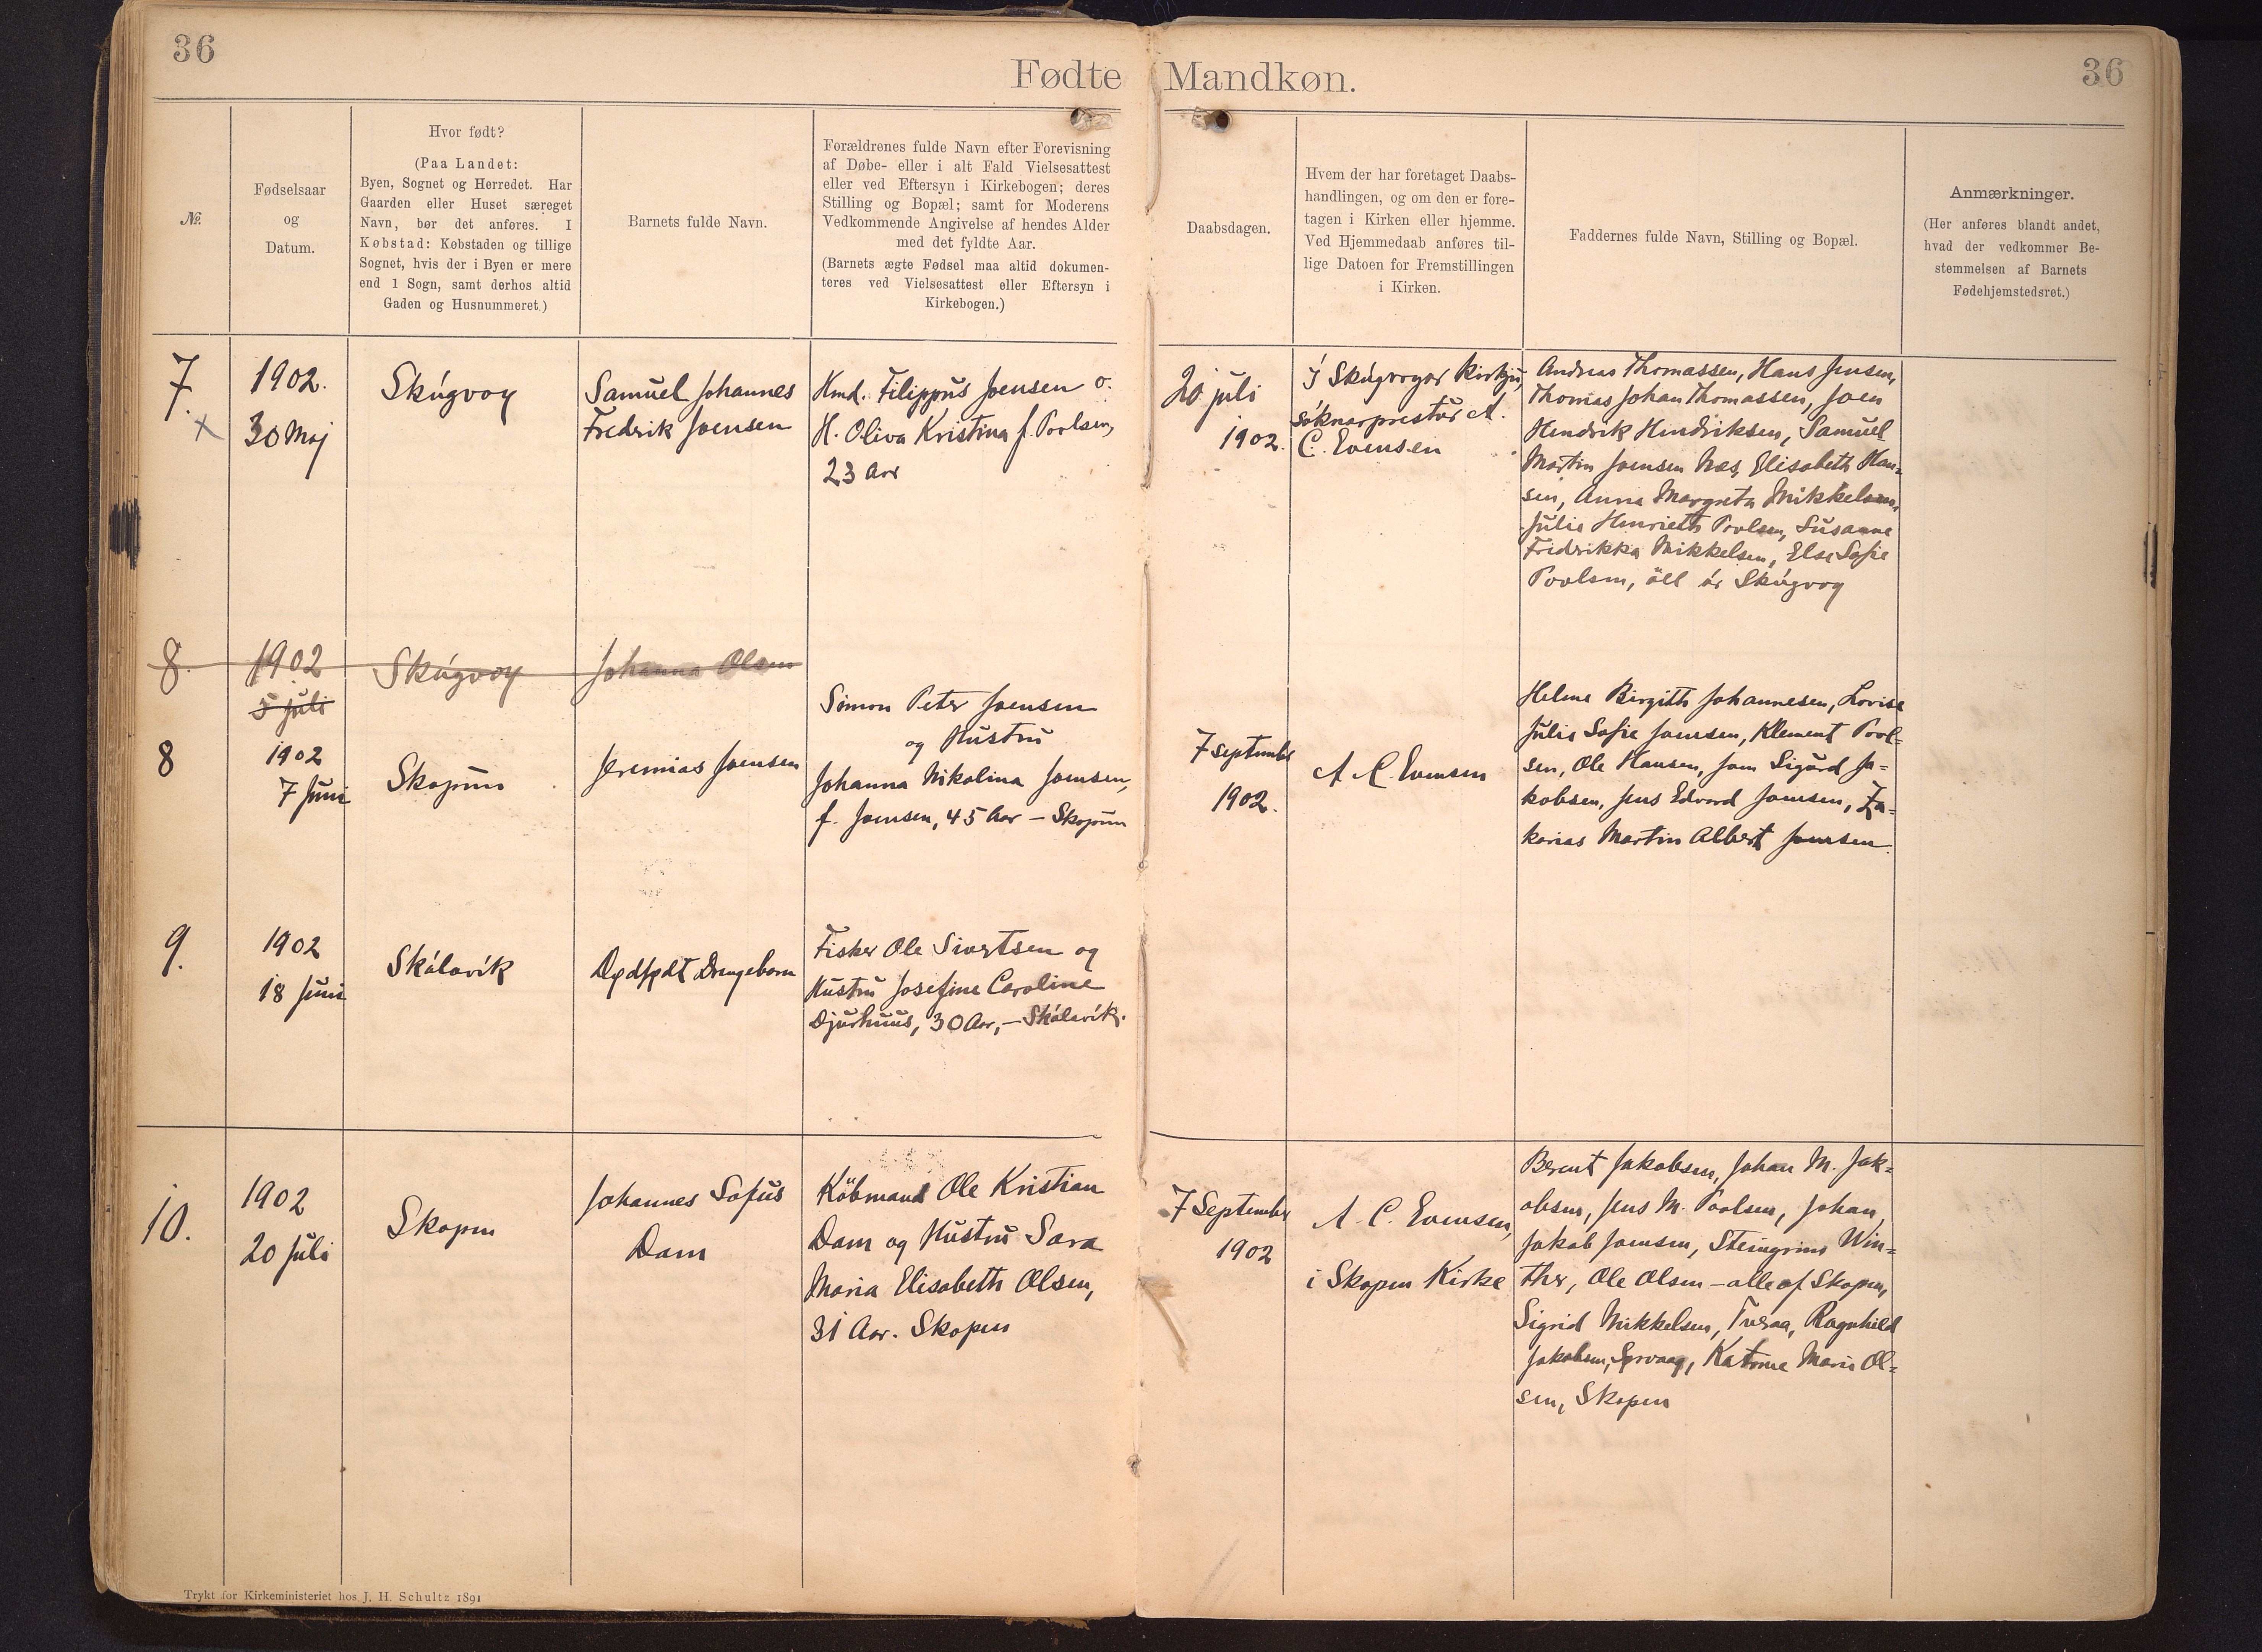 36
Fødte Mandkøn.
36
№.
Fødselsaar
og
Datum.
Hvor født?
(Paa Landet:
Byen, Sognet og Herredet. Har
Gaarden eller Huset særeget
Navn, bør det anføres. I
Købstad: Købstaden og tillige
Sognet, hvis der i Byen er mere
end 1 Sogn, samt derhos altid
Gaden og Husnummeret.)
Barnets fulde Navn.
Forældrenes fulde Navn efter Forevisning
af Døbe- eller i alt Fald Vielsesattest
eller ved Eftersyn i Kirkebogen; deres
Stilling og Bopæl; samt for Moderens
Vedkommende Angivelse af hendes Alder
med det fyldte Aar.
(Barnets ægte Fødsel maa altid dokumen-
teres ved Vielsesattest eller Eftersyn i
Kirkebogen.)
Daabsdagen.
Hvem der har foretaget Daabs-
handlingen, og om den er fore-
tagen i Kirken eller hjemme.
Ved Hjemmedaab anføres til-
lige Datoen for Fremstillingen
i Kirken.
Faddernes fulde Navn, Stilling og Bopæl.
Anmærkninger.
(Her anføres blandt andet,
hvad der vedkommer Be-
stemmelsen af Barnets
Fødehjemstedsret.)
7.
x
1902.
30 Maj
Skúgvoy
Samuel Johannes
Fredrik Joensen
Hmd. Filippus Joensen o.
H. Oliva Kristina f. Poulsen,
23 Aar
20 juli
1902.
Í Skúgvoyar kirkju,
sóknarprestur A.
C. Evensen
Andreas Thomassen, Hans Jensen,
Thomas Johan Thomassen, Joen
Hendrik Hendriksen, Samuel
Martin Joensen Næs, Elisabeth Han-
sen, Anna Margreta Mikkelsen,
Julia Henrieth Poulsen, Susanne
Fredrikka Mikkelsen, Else Sofie
Poulsen, öll úr Skúgvoy
8.
1902
5 juli
Skúgvoy
Johanna Olsen
8
1902
7 Juni
Skopun
Jeremias Joensen
Simon Peter Joensen
og Hustru
Johanna Nikolina Joensen,
f. Joensen, 45 Aar - Skopun
7 september
1902.
A. C. Evensen
Helene Birgith Johannesen, Lovise
Julia Sofie Joensen, Klement Poul-
sen, Ole Hansen, Joen Sigurd Ja-
kobsen, Jens Edvard Joensen, Za-
karias Martin Albert Joensen.
9.
1902
18 Juni
Skálavík
Dødfødt Drengebarn
Fisker Ole Sivertsen og
Hustru Josefine Caroline
Djurhuus, 30 Aar, - Skálavík.
10.
1902
20 Juli
Skopen
Johannes Sofus
Dam
Köbmand Ole Kristian
Dam og Hustru Sara
Maria Elisabeth Olsen,
31 Aar. Skopen
7 September
1902
A. C. Evensen,
i Skopen Kirke
Berent Jakobsen, Johan M. Jak-
obsen, Jens M. Poulsen, Johan
Jakob Joensen, Steingrim Win-
ther, Ole Olsen - alle af Skopen,
Sigrid Mikkelsen, Tveraa, Ragnhild
Jakobsen, Sørvaag, Katrine Marie Ol-
sen, Skopen
Trykt for Kirkeministeriet hos J. H. Schultz 1891